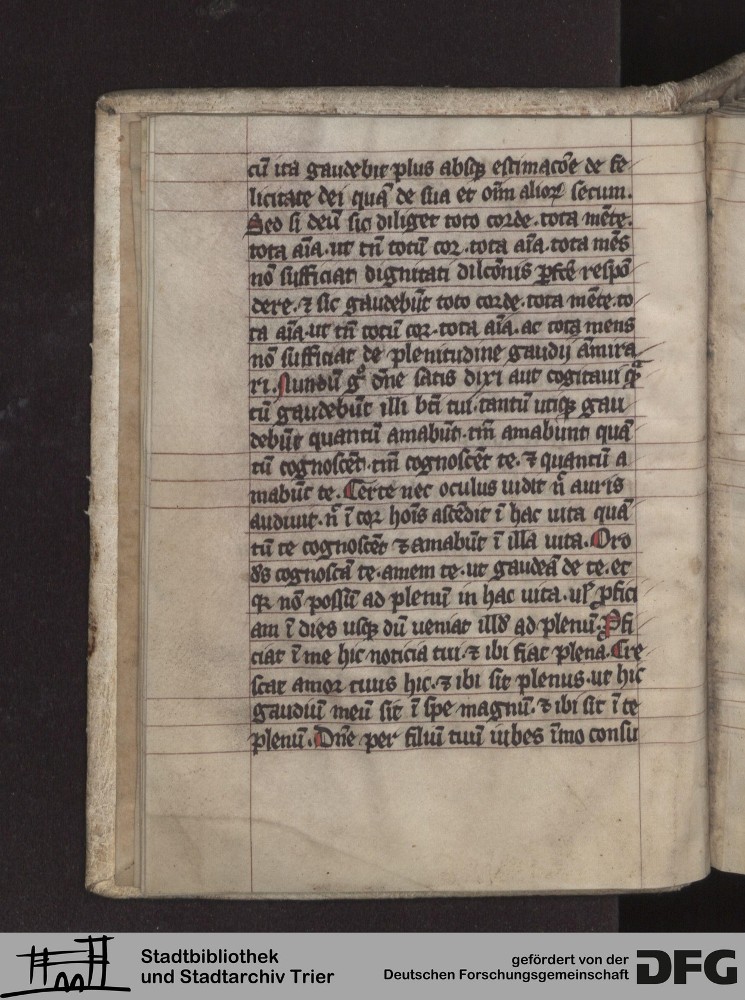 cū ita gaudebit plus absqꝫ estimacōe de fe
licitate dei quā de sua et oīm alioꝝ secum.
Sed si deū sic diliget toto corde. tota mēte.
tota aīa. ut tn̄ totū cor. tota aīa. tota mēs
nō sufficiat dignitati dilc̄onis ꝓfc̄o respō
dere. ⁊ sic gaudebūt toto corde. tota mēte. to
ta aīa. ut tn̄ totū cor. tota aīa. ac tota mens
nō sufficiat de plenitudine gaudij āmira
ri. Nundū gͦ dn̄e satis dixi aut cogitaui qͣ
tū gaudebūt illi bt̄i tui. tantū utiqꝫ gau
debūt quantū amabūt. tm̄ amabunt quā
tū cognoscēt. tm̄ cognoscēt te. ⁊ quantū a
mabūt te. Certe nec oculus uidit n̄ auris
audiuit. n̄ ī cor hoīs ascēdit ī hac uita quā
tū te cognoscēt ⁊ amabūt ī illa uita. Oro
ds̄ cognoscā te. amem te. ut gaudeā de te. et
qꝛ nō possū ad plenū in hac uita. ul̄ ꝓfici
am ī dies usqꝫ dū ueniat illd̄ ad plenū. Ꝓfi
ciat ī me hic noticia tui. ⁊ ibi fiat plena. Cre
scat amor tuus hic. ⁊ ibi sit plenus. ut hic
gaudiū meū sit ī spe magnū. ⁊ ibi sit ī te
plenū. Dn̄e per filiū tuū iubes īmo consu
Stadtbibliothek
und Stadtarchiv Trier
gefördert von der
Deutschen Forschungsgemeinschaft
DFG